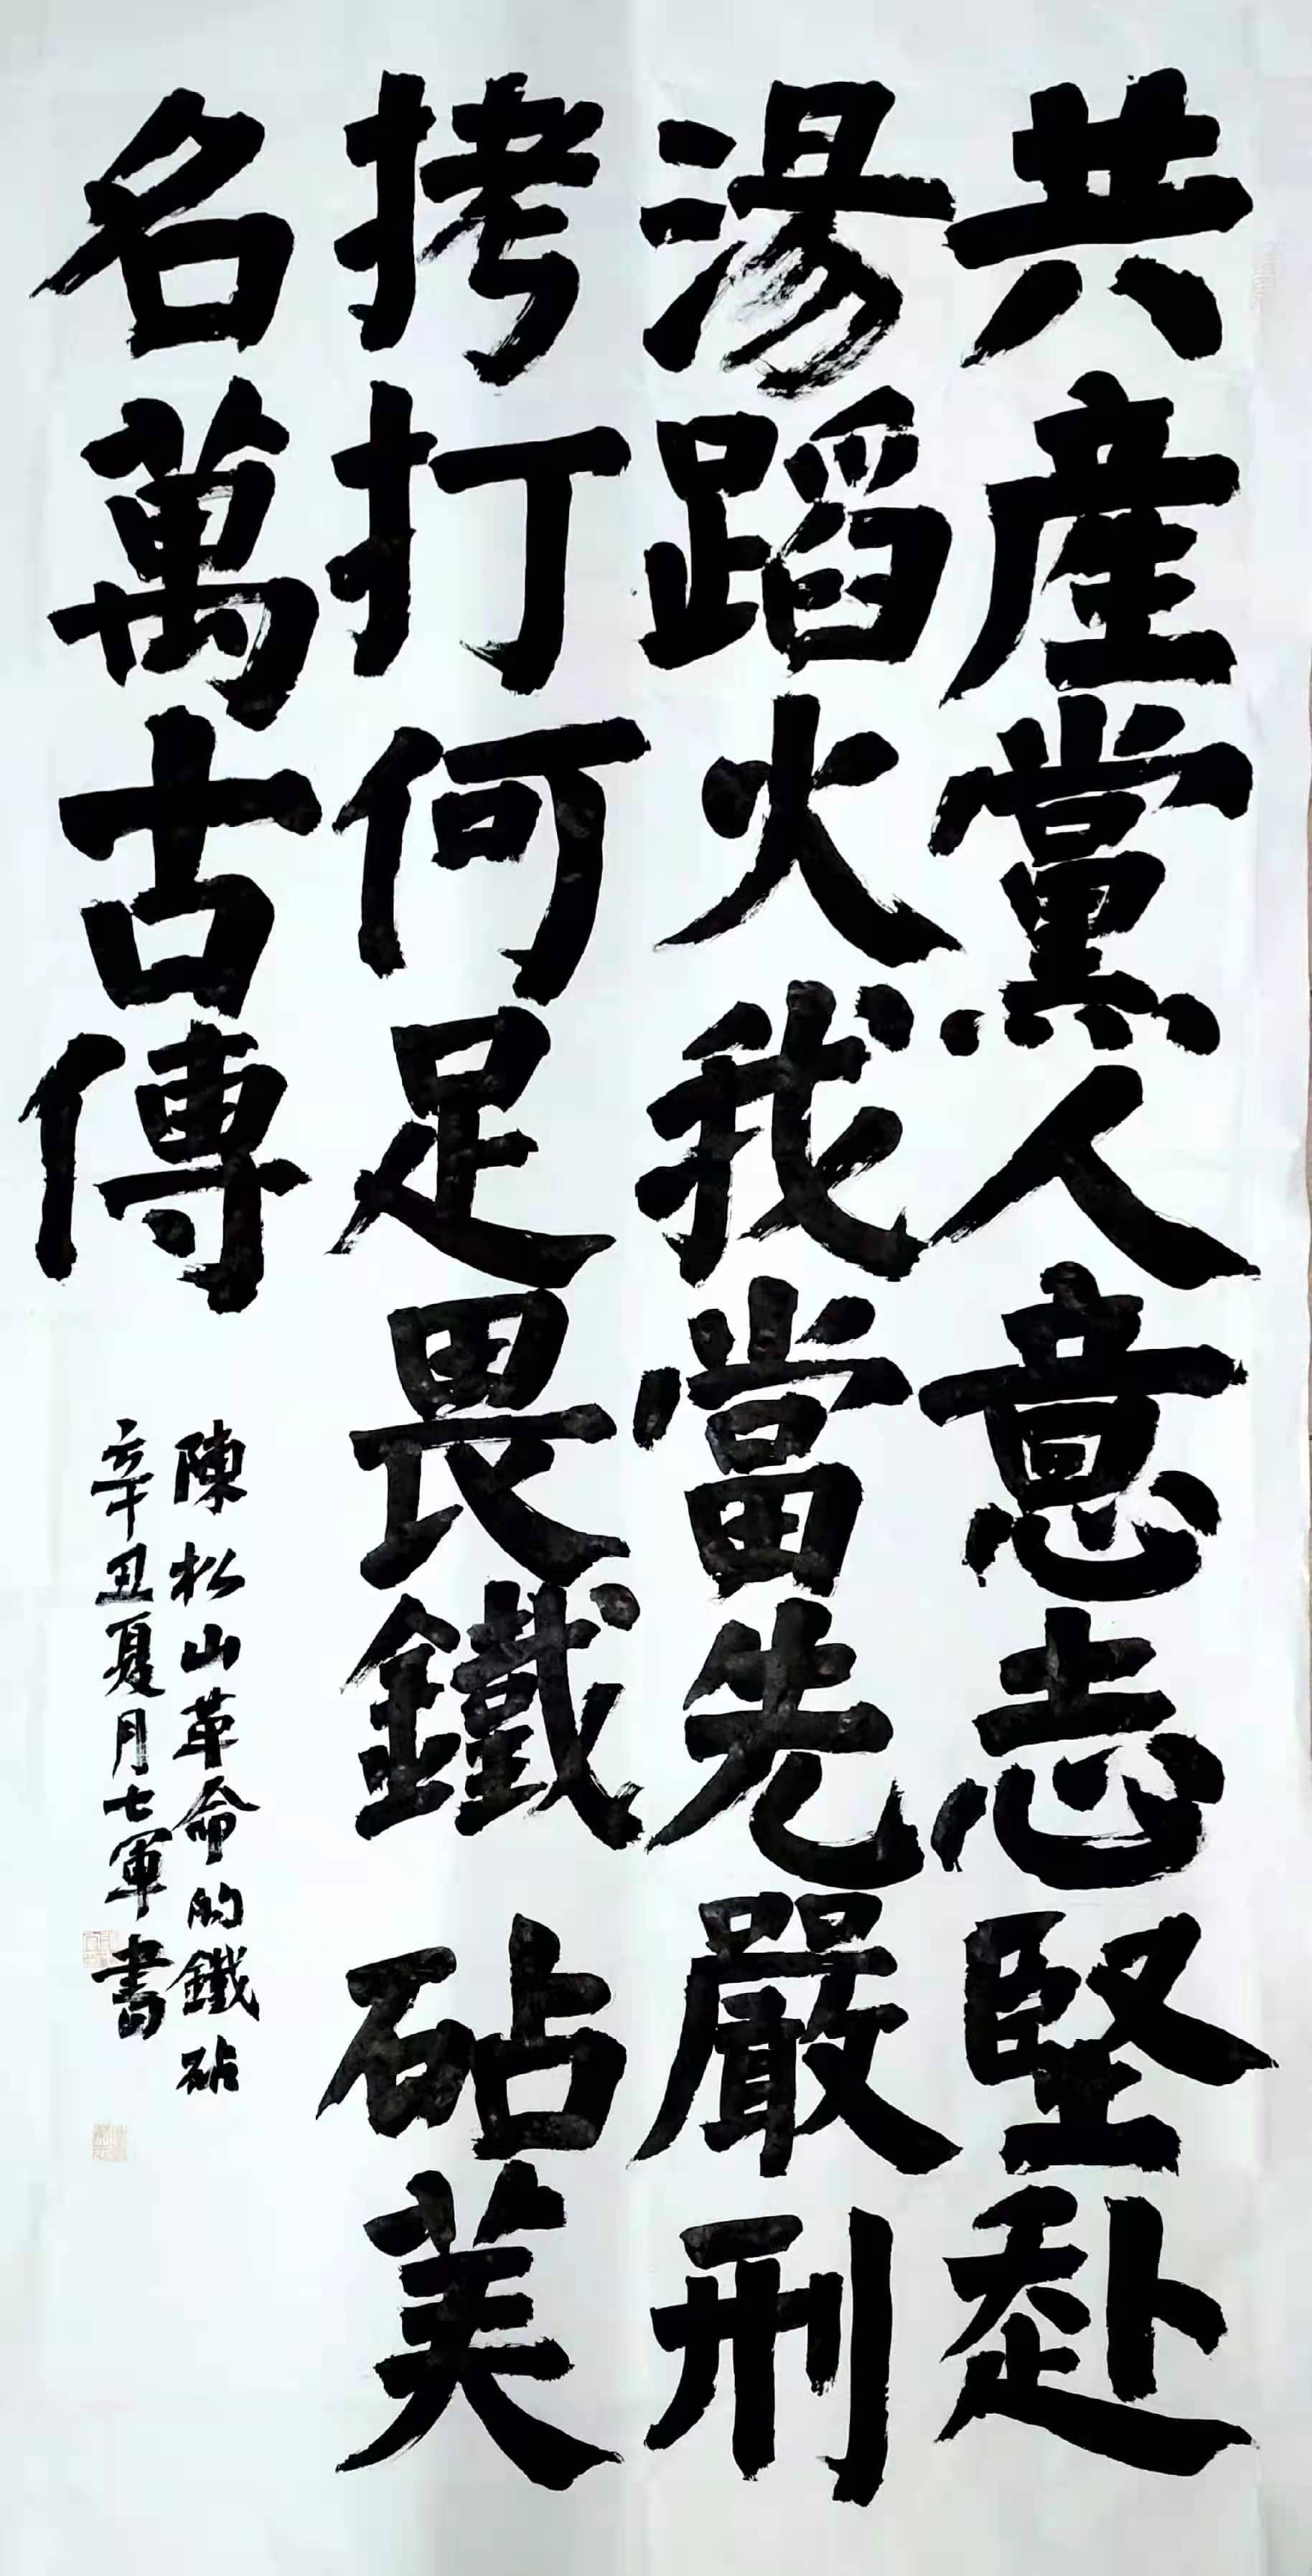 共産黨人意志堅赴
湯蹈火我當先嚴刑
拷打何足畏鐵砧美
名萬古傳
陳松山革命的鐵砧
辛丑夏月七軍書